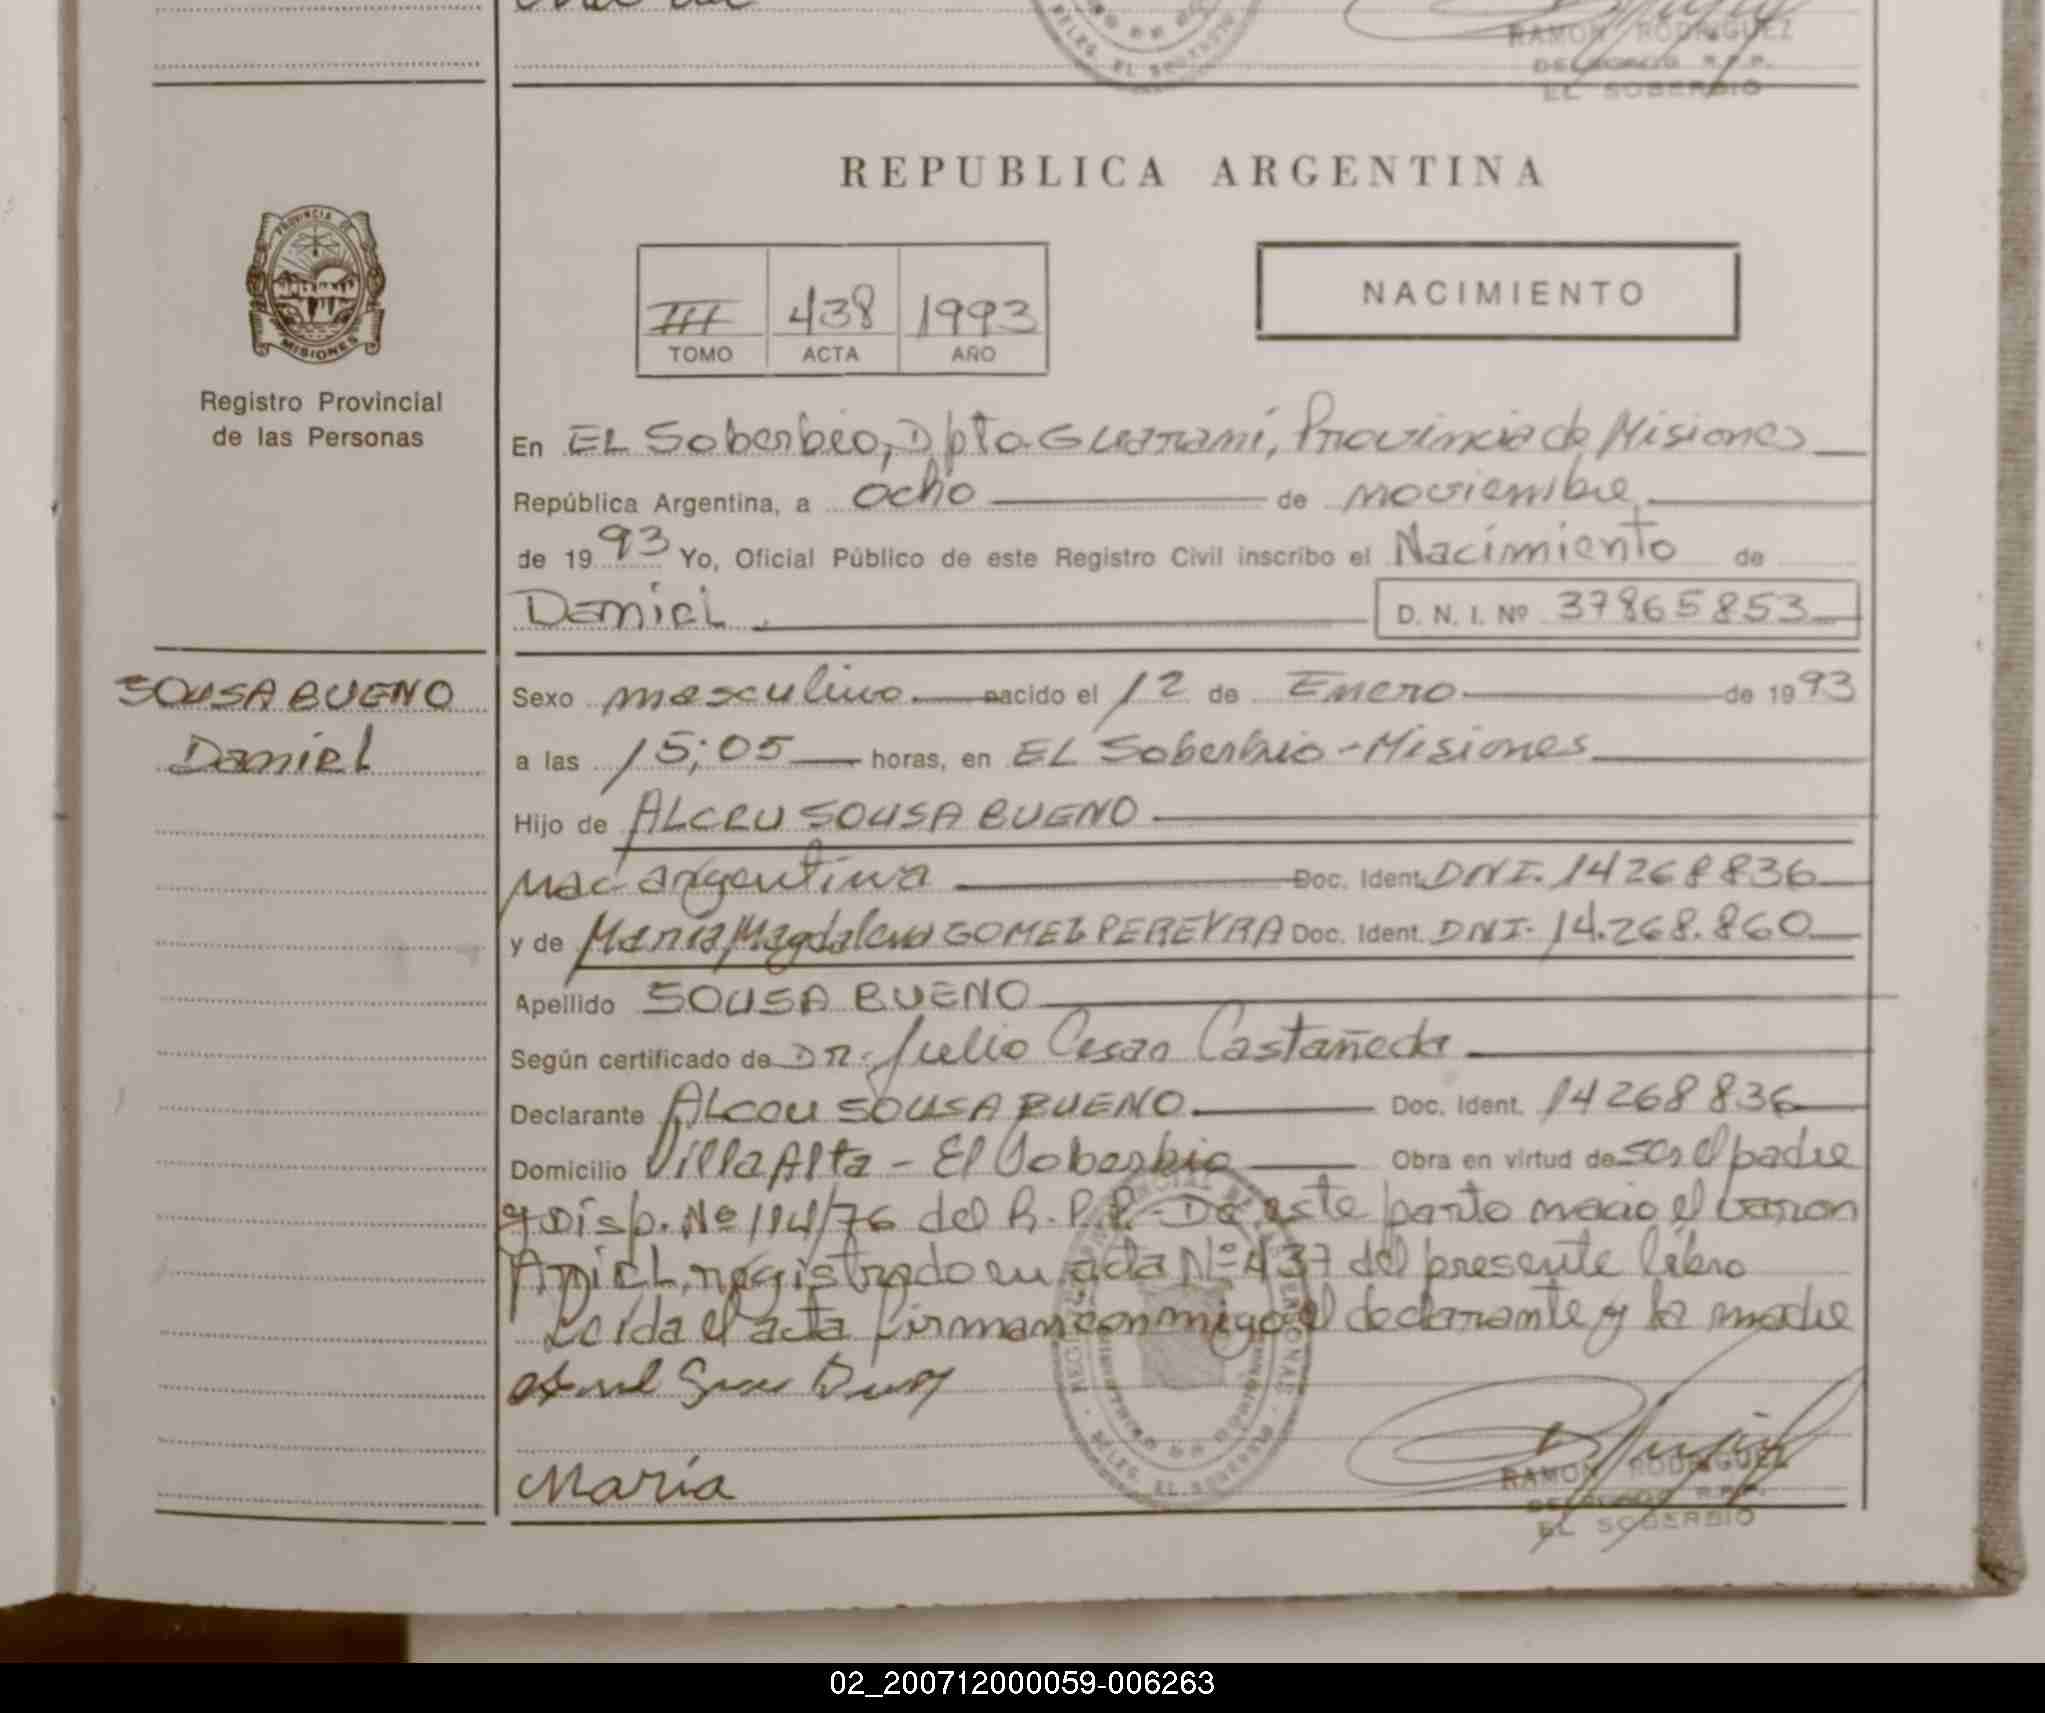 RAMON RODRIGUEZ
DELEGADO R.P.P.
EL SOBERBIO
DELEG. EL SOBERBIO
REPUBLICA ARGENTINA
PROVINCIA DE
MISIONES
Registro Provincial
de las Personas
III 438 1993
TOMO ACTA AÑO
NACIMIENTO
En EL Soberbio, Dpto Guaraní, Provincia de Misiones
República Argentina, a ocho de noviembre
de 19 93 Yo, Oficial Público de este Registro Civil inscribo el Nacimiento de
DaniEL D. N. I. Nº 37865853
SOUSA BUENO
DaniEL
Sexo masculino nacido el 12 de Enero de 19 93
a las 15;05 horas, en EL Soberbio - Misiones
Hijo de ALCEU SOUSA BUENO
nac argentina Doc. Ident. DNI. 14268836
y de María Magdalena GOMEZ PEREYRA Doc. Ident. DNI. 14.268.860
Apellido SOUSA BUENO
Según certificado de DR. Julio Cesar Castañeda
Declarante ALCEU SOUSA BUENO Doc. Ident. 14268836
Domicilio Villa Alta - El Soberbio Obra en virtud de ser el padre
y Disp. Nº 114/76 del R.P.P. - De este parto nacio el varon
AniEL, registrado en acta Nº 437 del presente libro
Leída el acta firman conmigo el declarante y la madre
María
DELEG. EL SOBERBIO
RAMON RODRIGUEZ
DELEGADO R.P.P.
EL SOBERBIO
02_200712000059-006263